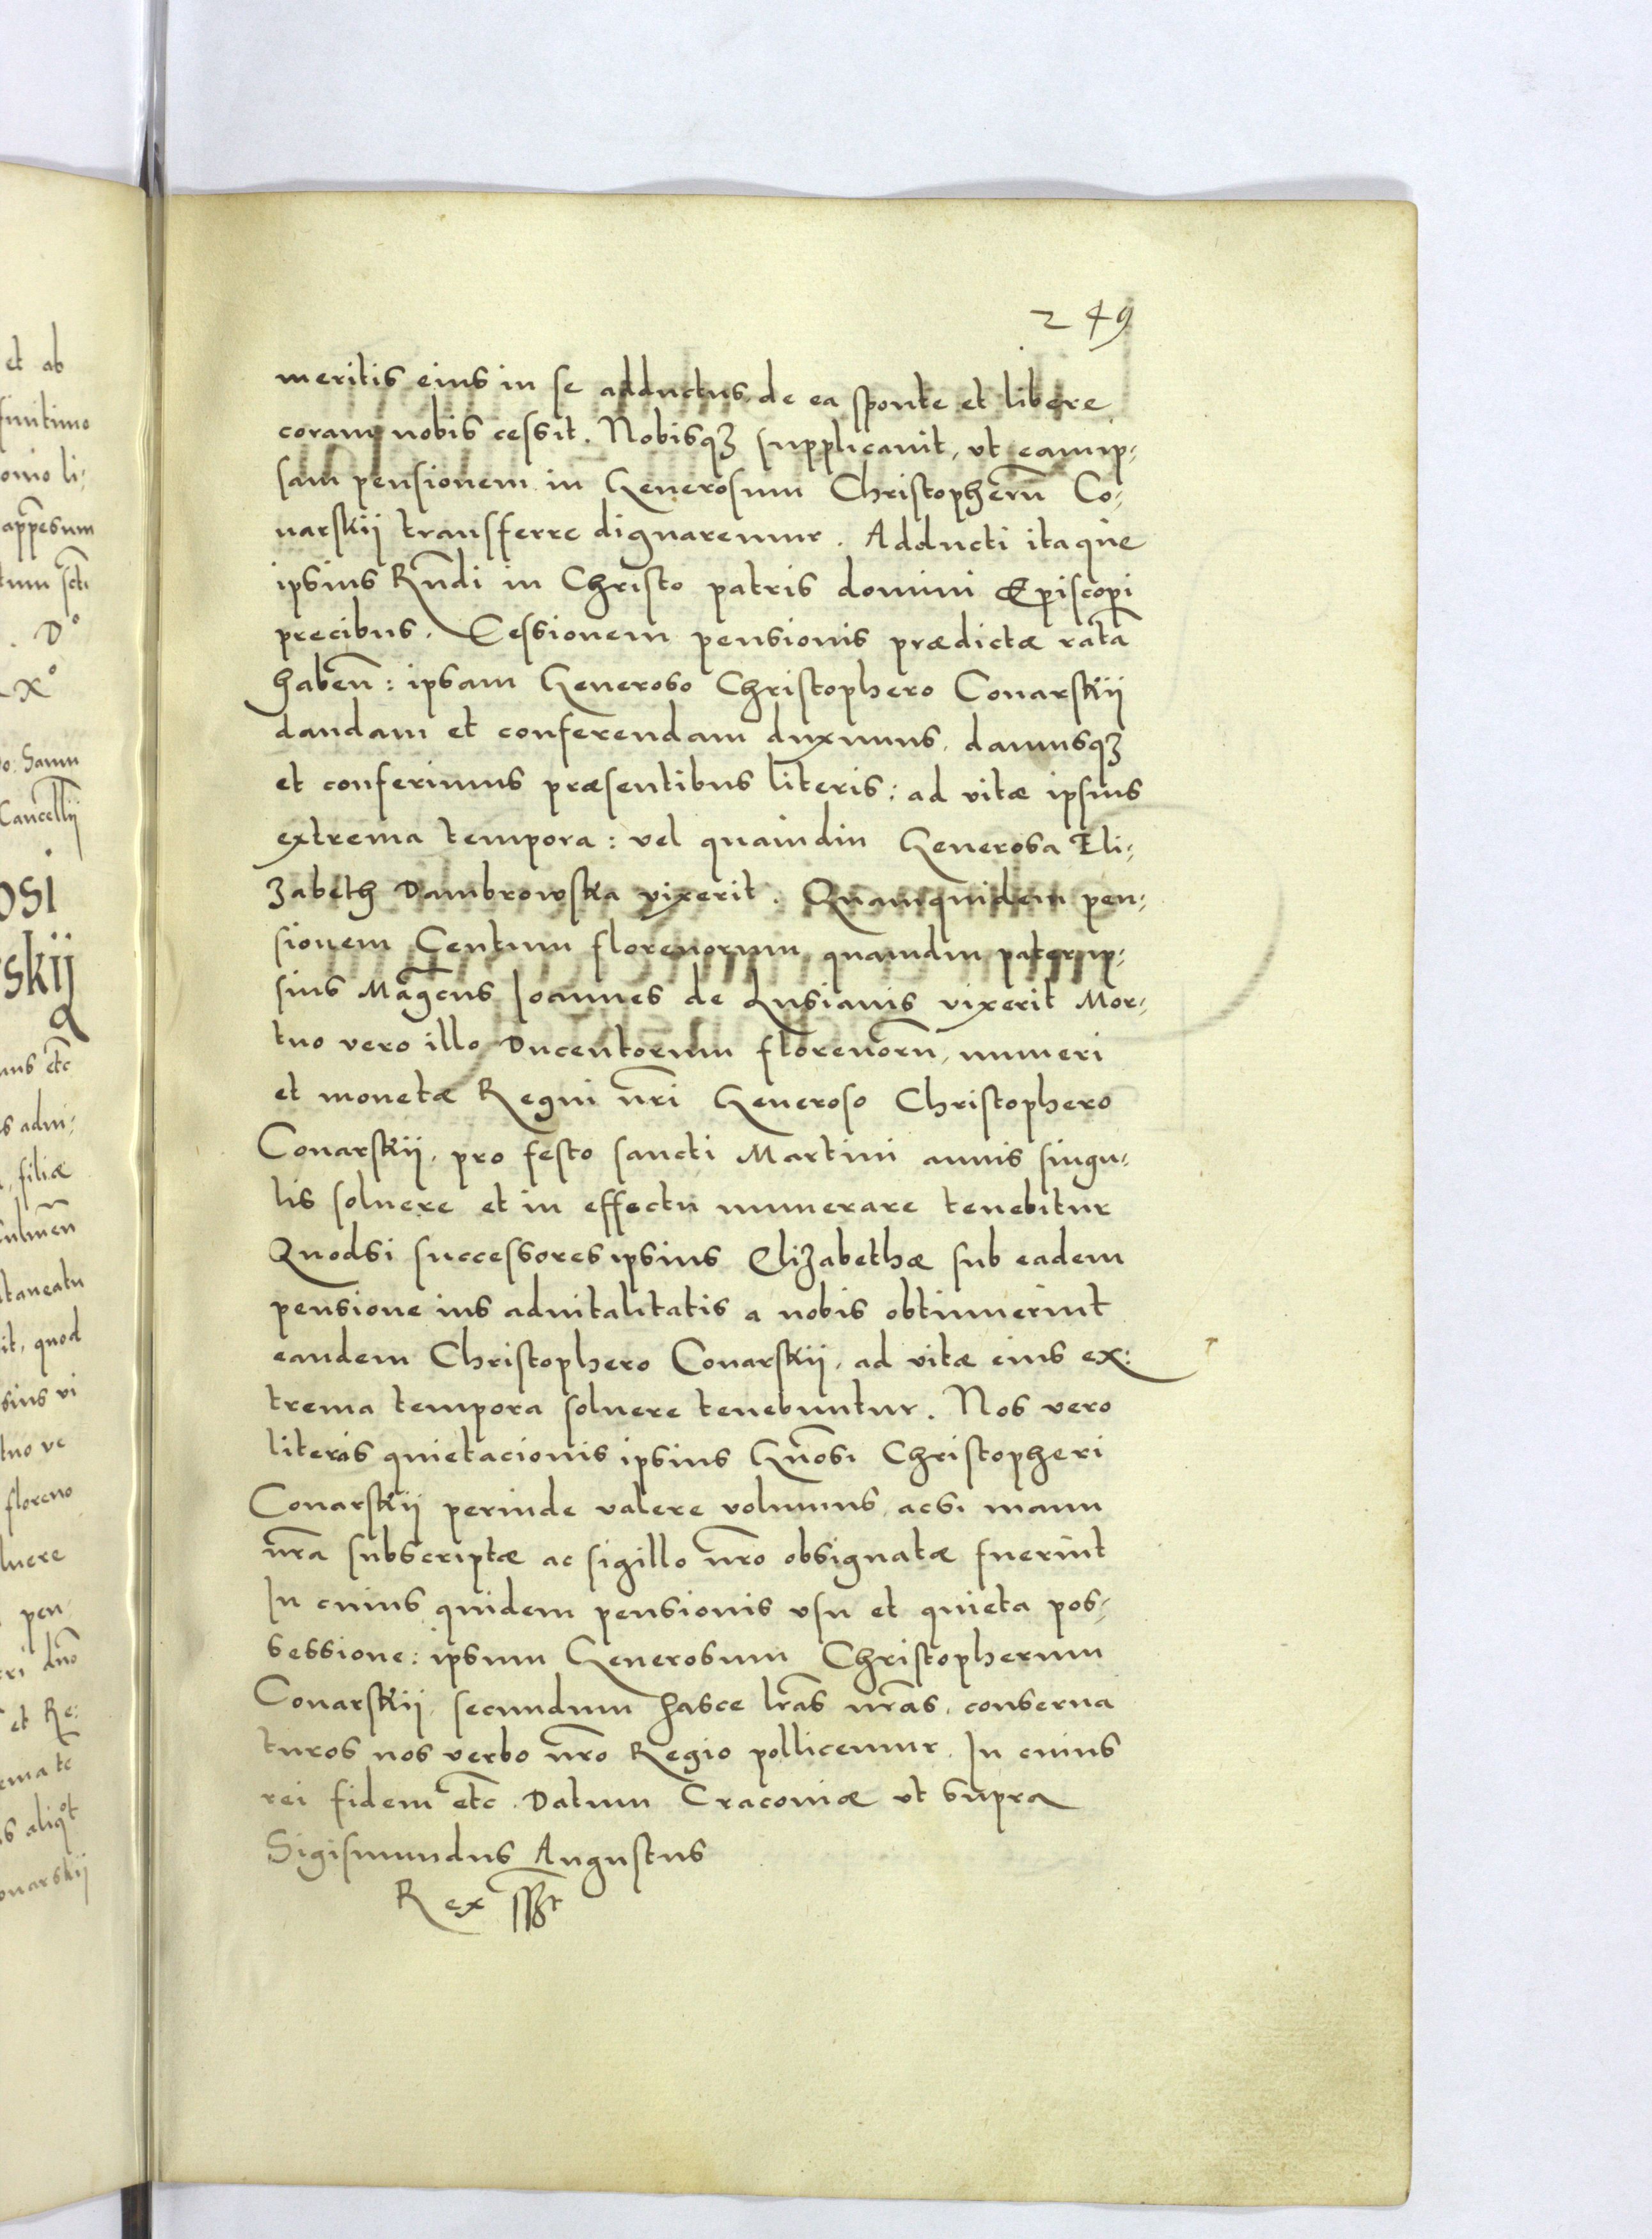 249
meritis eius in se adductus, de ea sponte et libere
coram nobis cessit. Nobisq3 supplicauit, vt eamip-
sam pensionem in Generosum Christopherū Co-
narskij transferre dignaremur. Adducti itaque
ipsius Rn̄di in Christo patris domini Episcopi
precibus. Cessionem pensionis prædictæ ratā
haben̄: ipsam Generoso Christophero Conarskij
dandam et conferendam duximus, damusq3
et conferimus præsentibus literis: ad vitæ ipsius
extrema tempora: vel quamdiu Generosa Eli-
zabeth Dambrowska vixerit. Quamquidem pen-
sionem Centum florenorum, quamdiu pater ip-
sius Mag̅cus Joannes de Lusianis vixerit Mor-
tuo vero illo Ducentorum florenorū, numeri
et monetæ Regni nr̄i Generoso Christophero
Conarskij, pro festo sancti Martini annis singu-
lis soluere et in effectu numerare tenebitur
Quodsi successores ipsius Elizabethæ sub eadem
pensione ius aduitalitatis a nobis obtinuerint
eandem Christophero Conarskij, ad vitæ eius ex:
trema tempora soluere tenebuntur. Nos vero
literas quietacionis ipsius Gn̄osi Christopheri
Conarskij perinde valere volumus, acsi manu
nr̄a subscriptæ ac sigillo nr̄o obsignatæ fuerint
In cuius quidem pensionis vsu et quieta pos-
sessione: ipsum Generosum Christopherum
Conarskij, secundum hasce lr̄as nr̄as, conserua
turos nos verbo nr̄o Regio pollicemur. In cuius
rei fidem etc̄. Datum Cracouiæ vt supra
Sigismundus Augustus
Rex